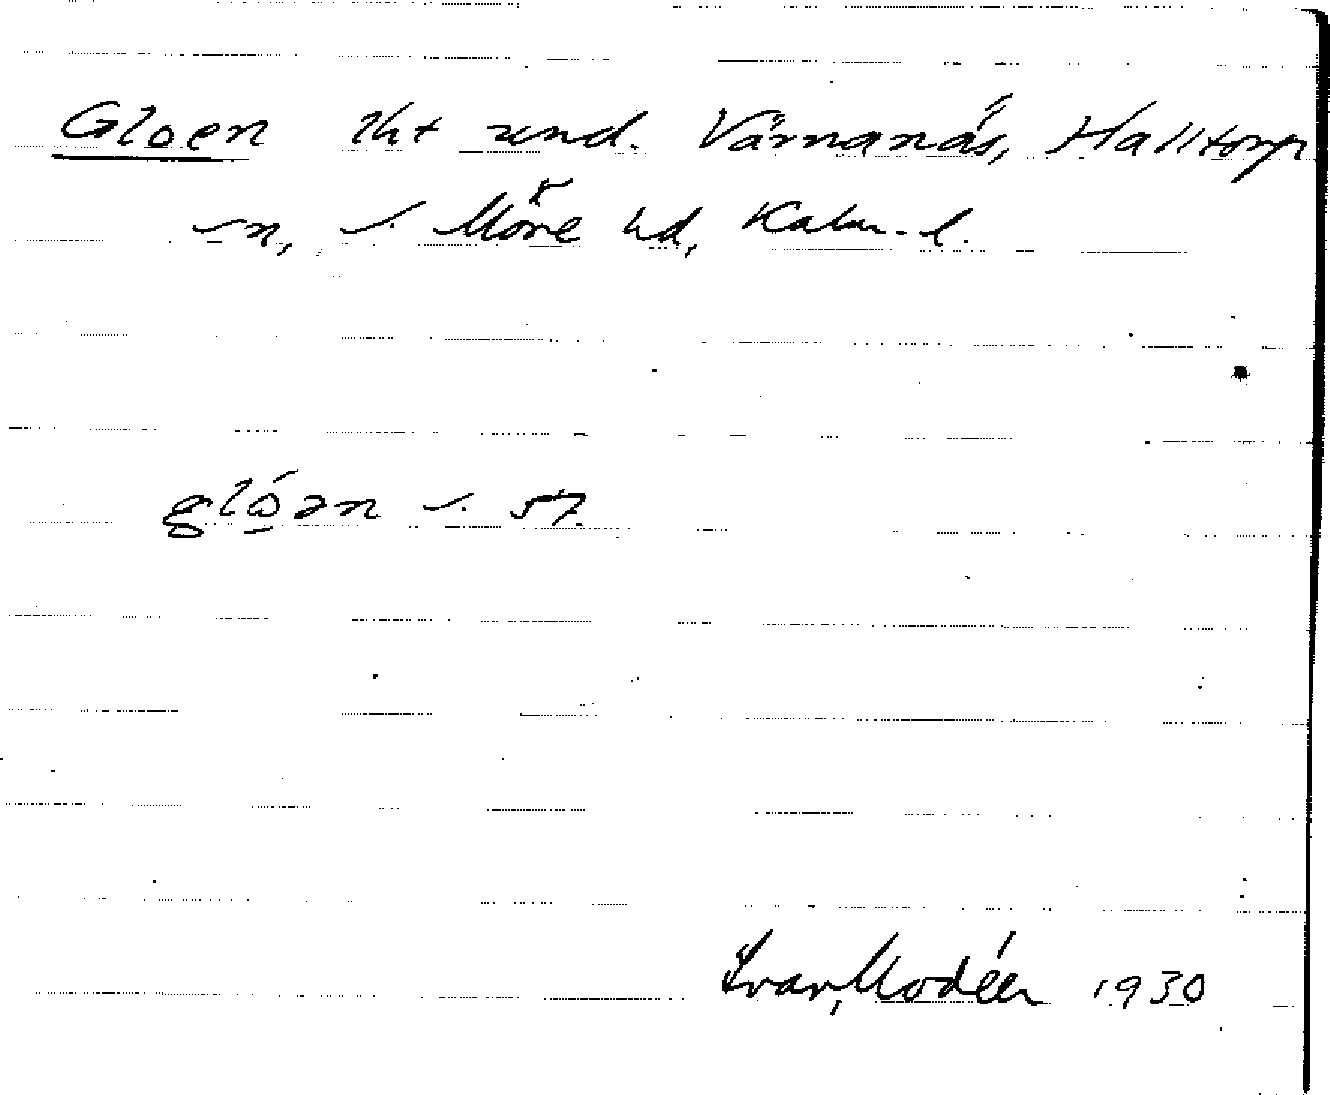 Gloen lht und. Värnanäs, Halltorp
sn, s. Möre hd, Kalm. l.
glóən s. 57.
Ivar Modéer 1930